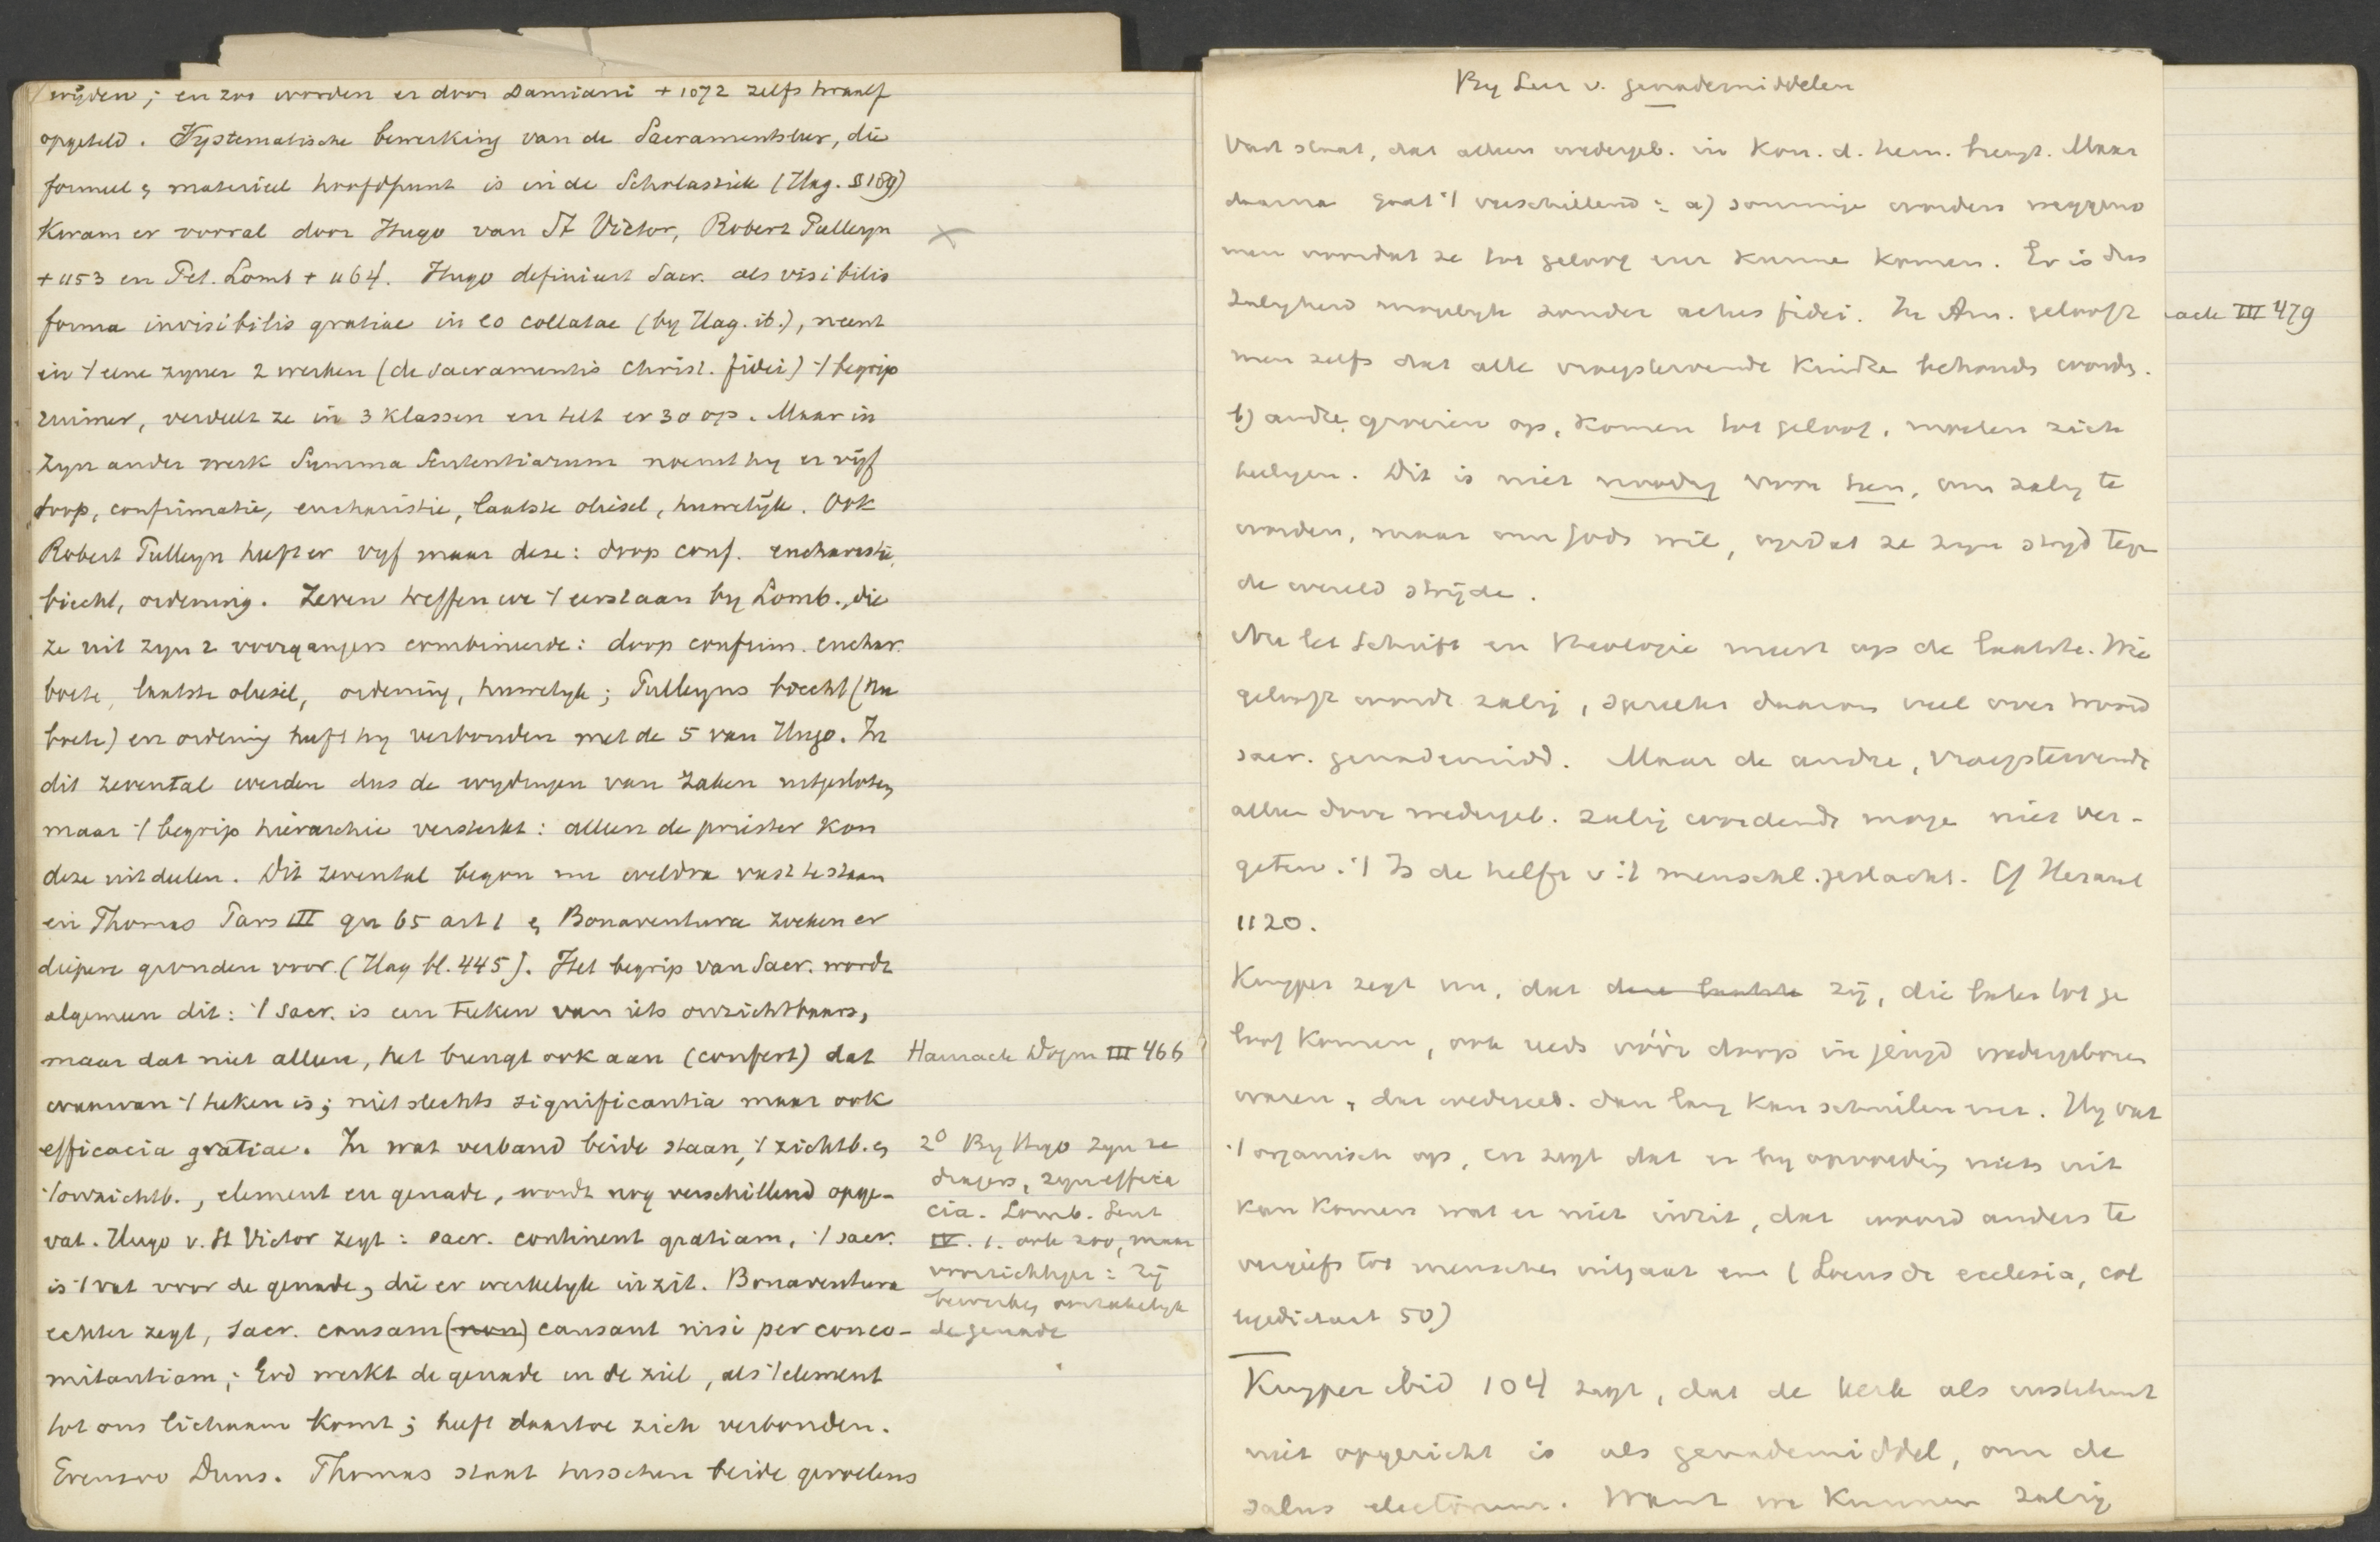 wijden; en zoo worden er door Damiani + 1072 zelfs twaalf
opgeteld. Systematische bewerking van de Sacramentsleer, die
formeel & materieel hoofdpunt is in de Scholastiek (Hag. § 189)
Kwam er vooral door Hugo van St Victor, Robert Pulleyn
+ 1153 en Pet. Lomb + 1164. Hugo definieert Sacr. als visibilis
forma invisibilis gratiae in eo collatae (by Hag. ib.), neemt
in 't eene zyner 2 werken (de sacramentis christ. fidei) 't begrip
ruimer, verdeelt ze in 3 klassen en telt er 30 op. Maar in
zyn ander werk Summa Sententiarum noemt hy er vijf
doop, confirmatie, eucharistie, laatste oliesel, huwelijk. Ook
Robert Pulleyn heeft er vyf maar deze: doop conf. eucharistie,
biecht, ordening. Zeven treffen we 't eerst aan by Lomb., die
ze uit zyn 2 voorgangers combineerde: doop confirm. euchar.
boete, laatste oliesel, ordening, huwelyk; Pulleyns biecht (nu
boete) en ordening heeft hy verbonden met de 5 van Hugo. In
dit zevental werden dus de wydingen van zaken uitgesloten,
maar 't begrip hierarchie versterkt: alleen de priester kon
deze uitdeelen. Dit zevental begon nu weldra vast te staan
en Thomas Pars III qu 65 art 1 & Bonaventura zoeken er
diepere gronden voor (Hag bl. 445). Het begrip van Sacr. wordt
algemeen dit: 't sacr. is een teeken van iets onzichtbaars,
maar dat niet alleen, het brengt ook aan (confert) dat
waarvan 't teeken is; niet slechts significantia maar ook
efficacia gratiae. In wat verband beide staan, 't zichtb. &
't onzichtb., element en genade, wordt nog verschillend opge-
vat. Hugo v. St Victor zegt: sacr. continent gratiam, 't sacr.
is 't vat voor de genade, die er werkelyk in zit. Bonaventura
echter zegt, sacr. causam (non) causant nisi per conco-
mitantiam; God werkt de genade in de ziel, als 't element
tot ons lichaam komt; heeft daartoe zich verbonden.
Evenzoo Duns. Thomas staat tusschen beide gevoelens
Harnack Dogm III 466
2° By Hugo zyn ze
dragers, zyn effica
cia. Lomb. Sent
IV. 1. ook zoo, maar
voorzichtiger: zij
bewerken oorzakelyk
de genade
By Leer v. genademiddelen
Vast staat, dat alleen wedergeb. in Kon. d. hem. brengt. Maar
daarna gaat 't verschillend: a) sommige worden weggeno
men voordat ze tot geloof enz kunne komen. Er is dus
zaligheid mogelyk zonder actus fidei. In Am. gelooft
men zelfs dat alle vroegstervende Kindre behoude worde.
b) andre groeien op, komen tot geloof, moeten zich
heiligen. Dit is niet noodig voor hen, om zalig te
worden, maar om Gods wil, opdat ze zyn stryd tege
de wereld strijde.
Nu let Schrift en theologie meest op de laatste. Wie
gelooft wordt zalig, spreekt daarom veel over woord
sacr. genademidd. Maar de andre, vroegstervende
alleen door wedergeb. zalig wordende moge niet ver-
geten. 't Is de helft v. 't menschel. geslacht. Cf Heraut
1120.
Kuyper zegt nu, dat deze laatste zij, die later tot ge
loof komen, ook reeds vóór doop in jeugd wedergeboren
waren, dat wedergeb. dan lang kan schuilen enz. Hy vat
't organisch op, en zegt dat er by opvoeding niets uit
kan komen wat er niet inzit, dat woord anders te
vergeefs tot menschen uitgaat enz (Locus de ecclesia, col
legedictaat 50)
Kuyper ibid 104 zegt, dat de kerk als instituut
niet opgericht is als genademiddel, om de
salus electorum. Want we kunnen zalig
ack III 479